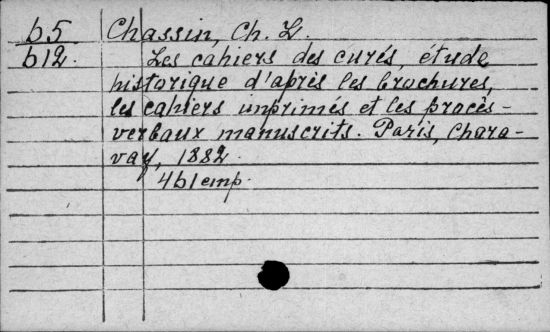 b5 Chassin, Ch. L.
b12. Les cahiers des curés, étude
historique d'après les brochures,
les cahiers imprimés et les procès-
verbaux manuscrits. Paris, Chara-
vay, 1882.
461 emp.